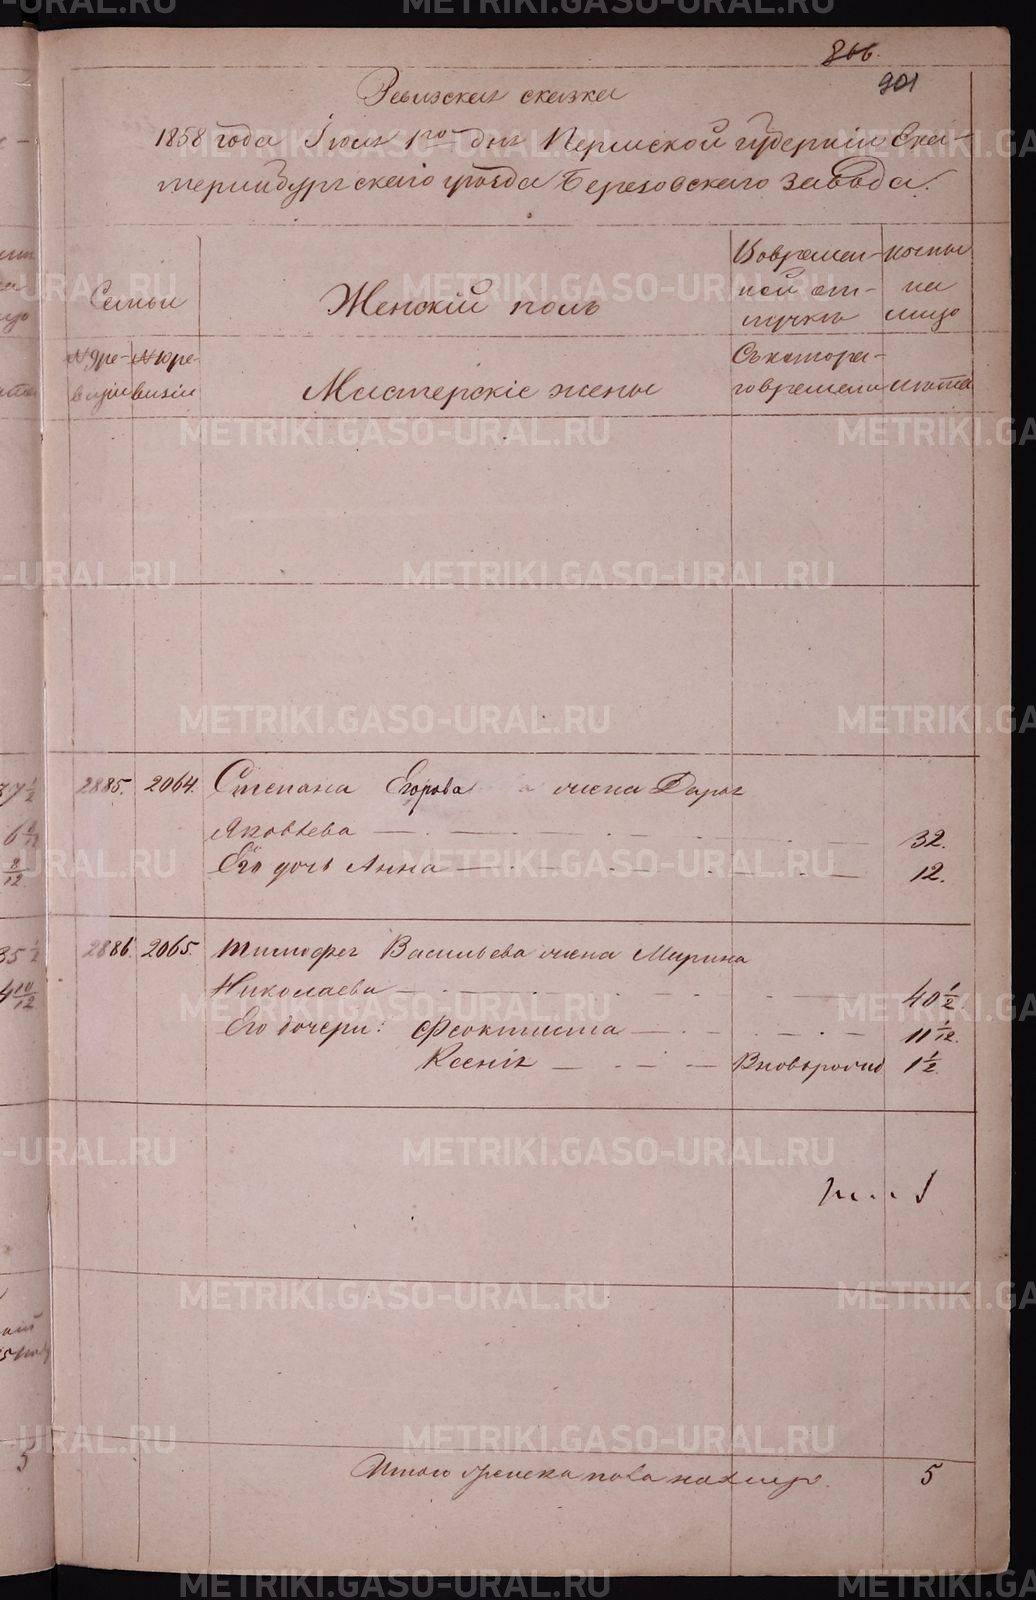 866.
901
Ревизская сказка
1858 года Июля 1го дня Пермской губернии Ека-
теринбургскаго уезда Березовскаго завода.
Семьи
Женскій полъ
Вовремен-
ной от-
лучкѣ
поспи
на
лицо
№ 9 ре-
визіи
№ 10 ре-
визіи
Мастерскіе жены
Съкотора-
говремени
лѣта
2885. 2064. Степана Егорова жена Дарья
Яковлева 32.
Его дочь Анна 12.
2886. 2065. Тимофея Васильева жена Марина
Николаева 40 1/2
Его дочери: Феоктиста 11 1/12.
Ксенія Вноворожд 1 1/2.
Итого женска пола налицо. 5
METRIKI.GASO-URAL.RU